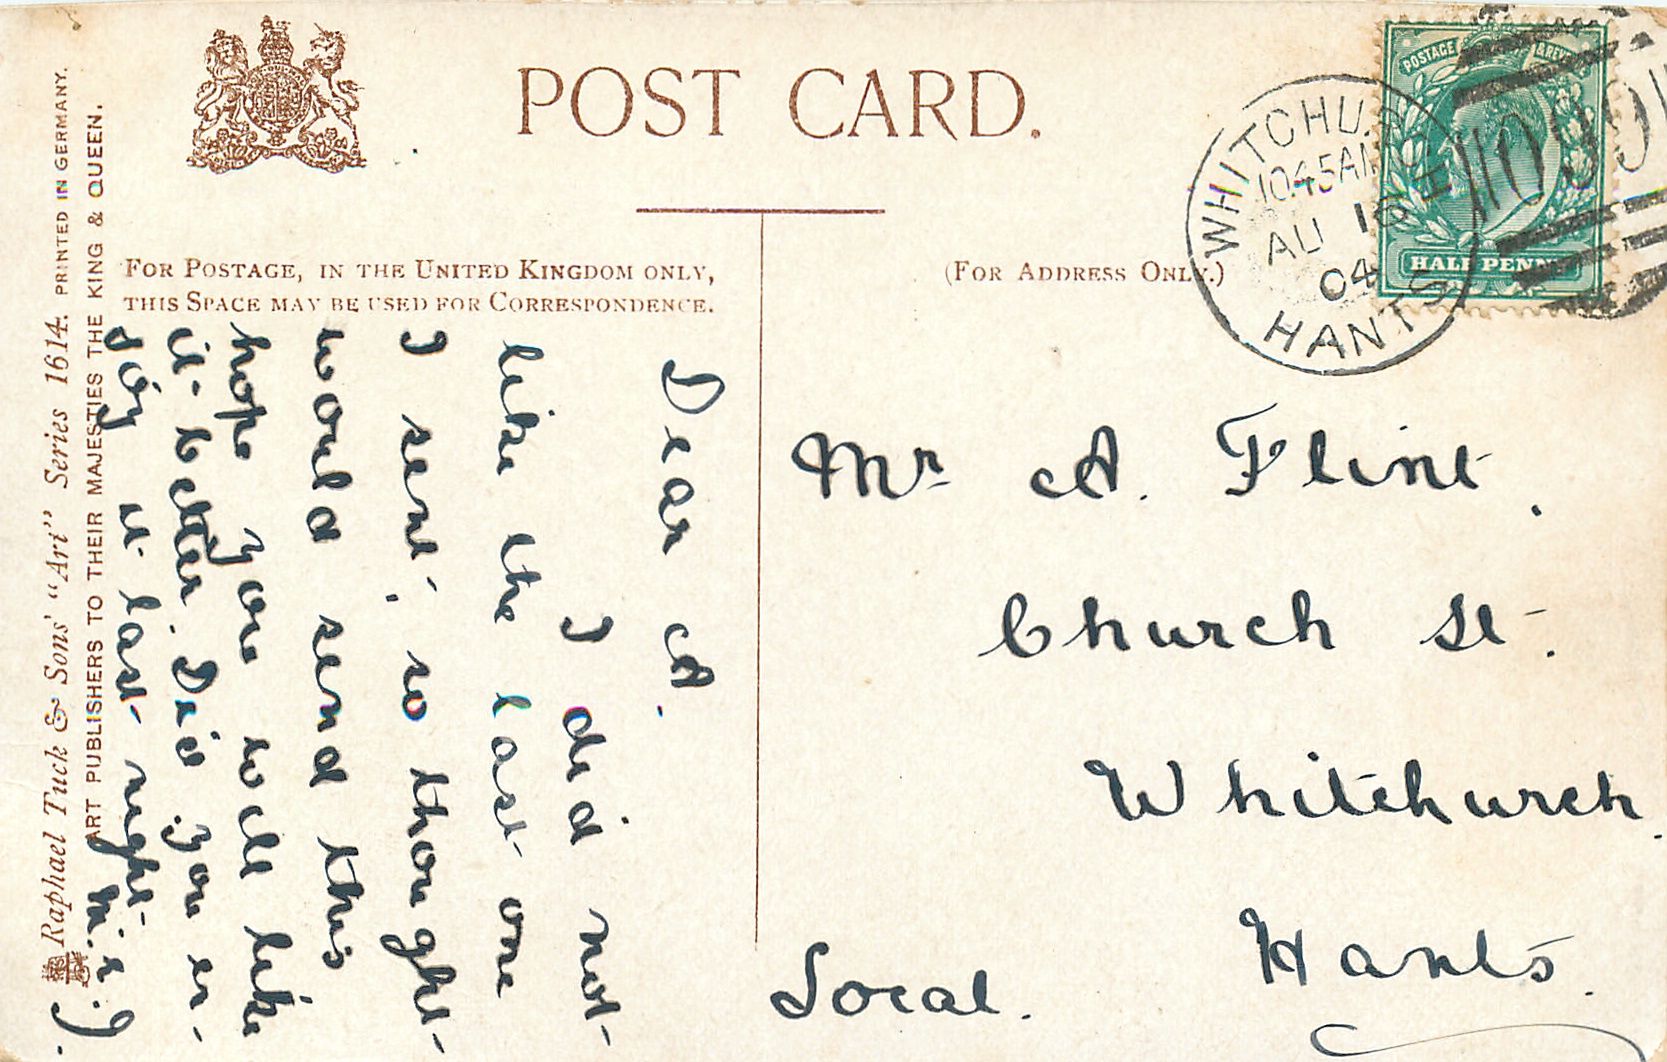 POST CARD.
FOR POSTAGE, IN THE UNITED KINGDOM ONLY,
THIS SPACE MAY BE USED FOR CORRESPONDENCE.
(FOR ADDRESS ONLY.)
POSTAGE & REVENUE
HALF PENNY
WHITCHURCH
10.45AM
AU 16
04
HANTS
Dear A.
I did not
like the last one
I sent, so thought
would send this
hope you will like
it better. Did you en-
joy it last night
Mr A. Flint.
Church St.
Whitchurch.
Hants.
Local.
Raphael Tuck & Sons' "Art" Series 1614. PRINTED IN GERMANY.
ART PUBLISHERS TO THEIR MAJESTIES THE KING & QUEEN.